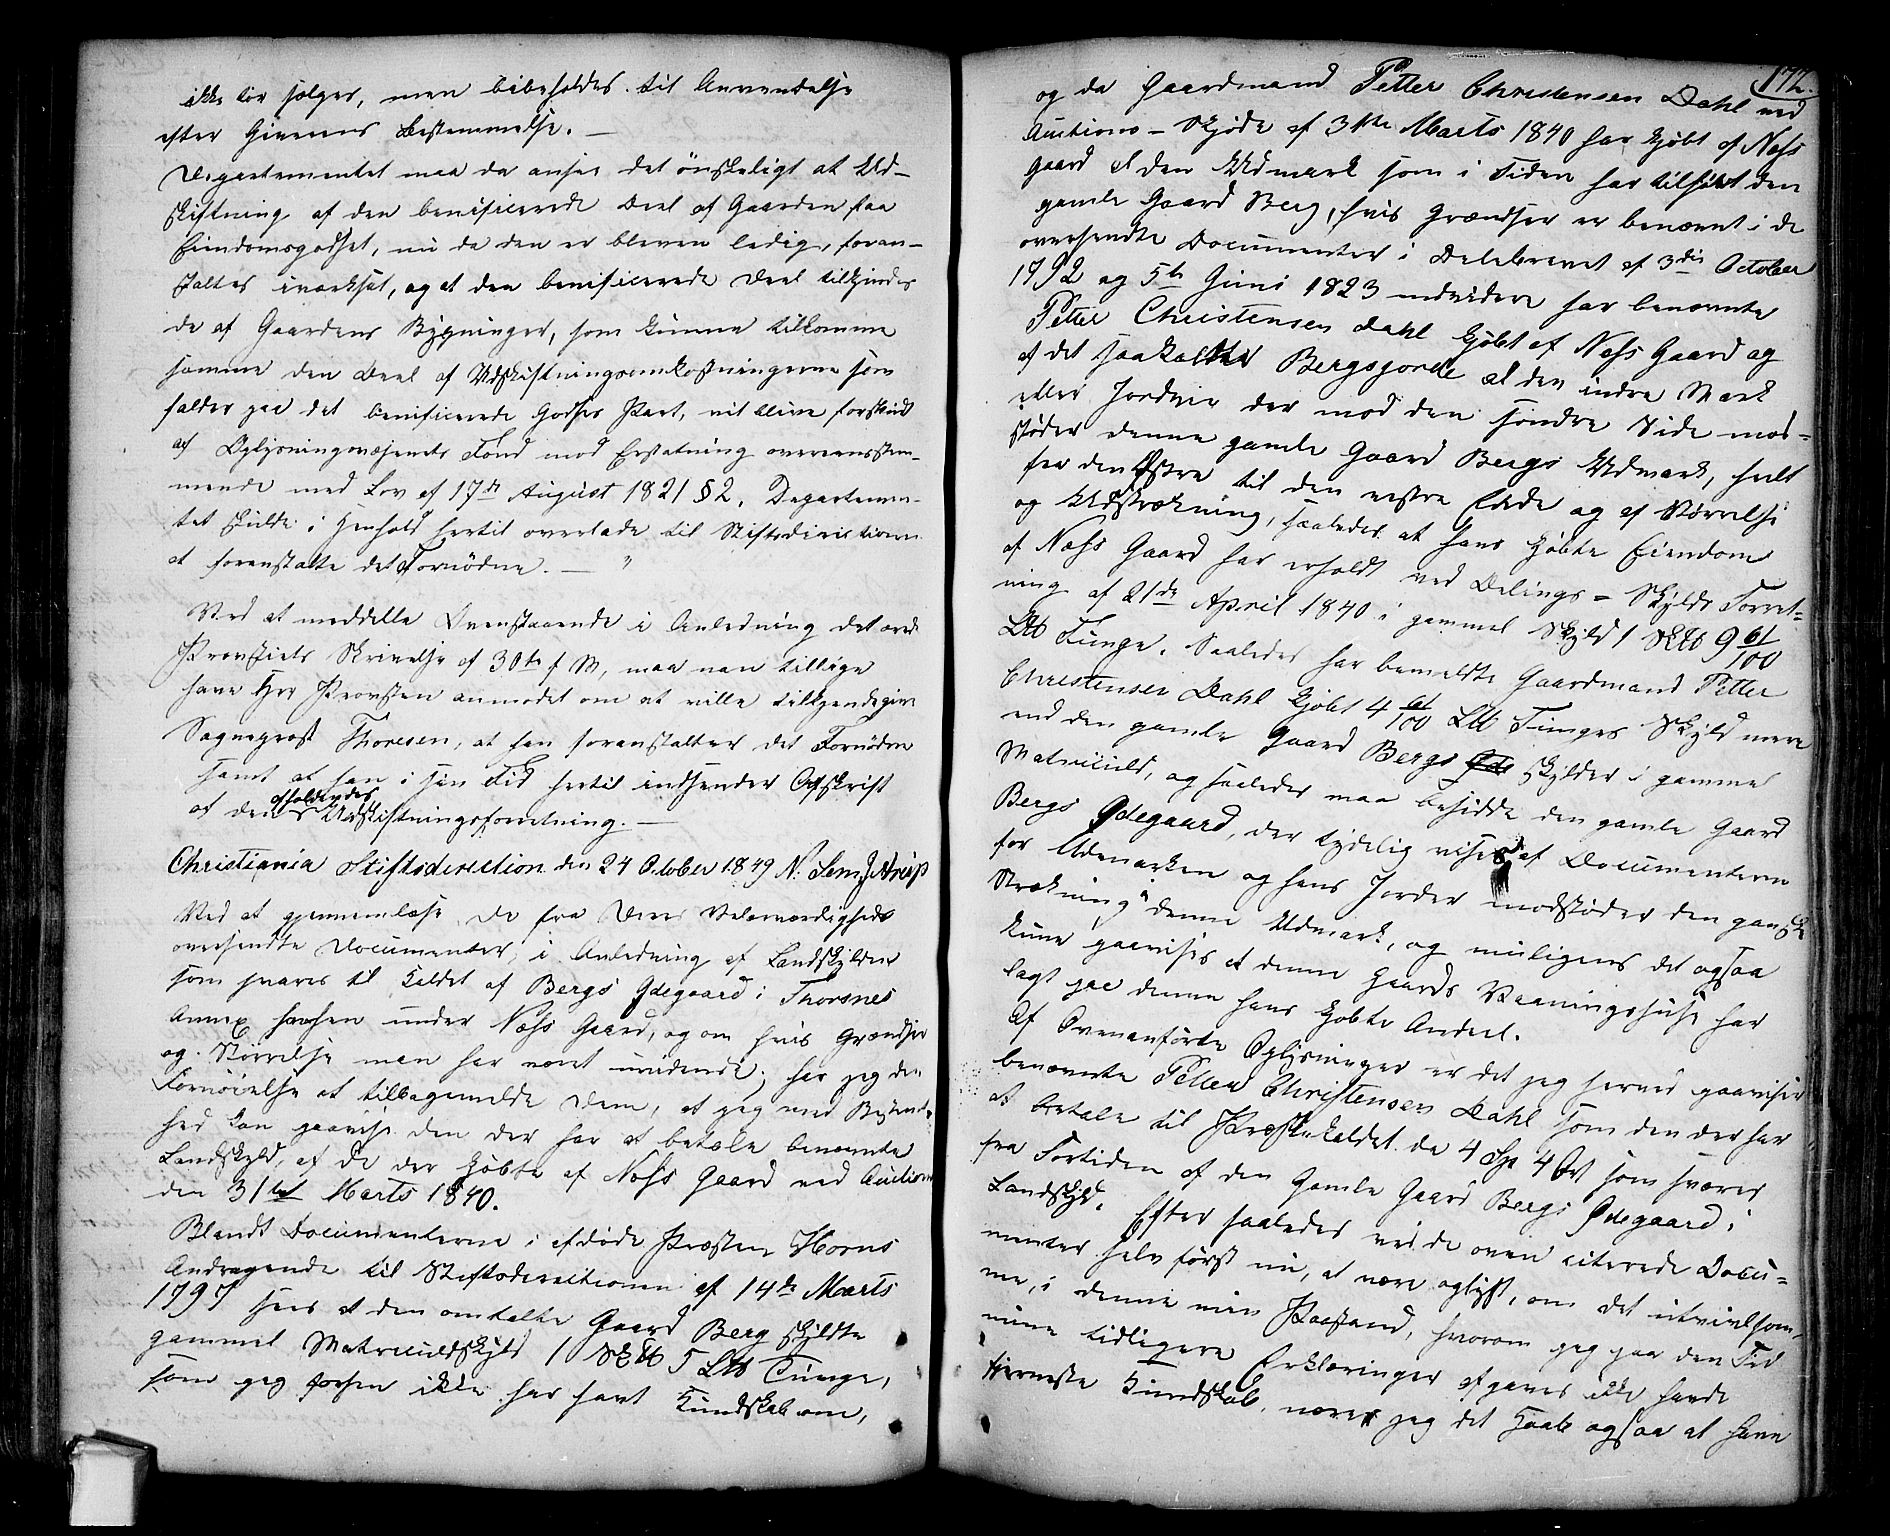 ikke bør sælges, men bibeholdes til Anvendelse
efter Giverens Bestemmelse. —
Departementet maa da ansee det ønskeligt at Ud-
skiftning af den benificerede Deel af Gaarden fra
Eiendomsgodset, nu da den er bleven ledig, foran-
staltes iværksat, og at den benificerede Deel tilkjendes
de af Gaardens Bygninger, som kunne tilkomme
samme den Deel af Udskiftningsomkostningerne som
falder paa det benificerede Godses Part, vil blive forskudt
af Oplysningsvæsenets Fond mod Erstatning overensstem-
mende med Lov af 17de August 1821 § 2. Departemen-
tet skulde i Henhold hertil overlade til Stiftsdirectionen
at foranstalte det Fornødne. — "
Ved at meddele Ovenstaaende i Anledning det ærede
Provstiets Skrivelse af 30te f M, maa man tillige
have Hr Provsten anmodet om at ville tilkjendegive
Sognepræst Thoresen, at han foranstalter det Fornødne
samt at han i sin Tid hertil indsender Afskrift
af den afholdendes Udskiftningsforretning. —
Christiania Stiftsdirection den 24 October 1849 N. Sem J Arup
Ved at gjennemlæse de fra Deres Velærværdigheds
oversendte Documenter, i Anledning af Landskylden
som svares til Kaldet af Bergs Ødegaard i Thorsnes
Annex Sognen under Næss Gaard, og om hvis Grændser
og Størrelse man har været uvidende; har jeg den
Fornøielse at tilbagemelde Dem, at jeg med Bestemt-
hed kan paavise den der har at betale benævnte
Landskyld, af de der kjøbte af Næss Gaard ved Auction
den 31te Marts 1840.
Blandt Documenterne i afdøde Præsten Horns
Andragende til Stiftsdirectionen af 14de Marts
1797 sees at den omtalte Gaard Berg skyldte
gammel Matriculskyld 1 Sk℔ 5 L℔ Tunge,
som jeg forhen ikke har havt Kundskab om,
172.
og da Gaardmand Petter Christensen Dahl ved
Auctions-Skjøde af 31te Marts 1840 har kjøbt af Næss
Gaard al den Udmark som i Tiden har tilhørt den
gamle Gaard Berg, hvis Grændser er benævnt i de
oversendte Documenter i Delebrevet af 3die October
1792 og 5te Juni 1823 endvidere har benævnte
Petter Christensen Dahl kjøbt af Næss Gaard og
af det saakaldte Bergsjorde al den indre Mark
eller Jordvei der mod den søndre Side mod-
støder denne gamle Gaard Bergs Udmark, heelt
fra den Østre til den vestre Ende og af Størrelse
og Udstrækning, saaledes at hans kjøbte Eiendom
af Næss Gaard har erholdt ved Delings- Skylds Forret-
ning af 21de April 1840 i gammel Skyld 1 Sk℔ 9 61/100
L℔ Tunge. Saaledes har bemeldte Gaardmand Petter
Christensen Dahl kjøbt 4 61/100 L℔ Tunges Skyld mere
end den gamle Gaard Bergs skylder i gammel
Matricul, og saaledes maa besidde den gamle Gaard
Bergs Ødegaard, der tydelig vises af Documenterne
for Udmarken og hans Jorder modstøder den ganske
Strækning i denne Udmark, og muligens det ogsaa
kunne paavises at denne Gaards Vaaningshuse har
lagt paa denne hans kjøbte Andeel.
Af Ovenanførte Oplysninger er det jeg herved paaviser
benævnte Petter Christensen Dahl som den der har
at betale til Præstekaldet de 4 Sp 4 Ort som svares
fra Fortiden af den Gamle Gaard Bergs Ødegaard i
Landskyld. Efter saaledes ved de oven citerede Docu-
menter selv først nu, at være oplyst, om det utvivlsom-
me, i denne min Paastand, hvorom jeg paa den Tid
mine tidligere Erklæringer afgaves ikke havde
fjerneste Kundskab, nærer jeg det Haab ogsaa at have